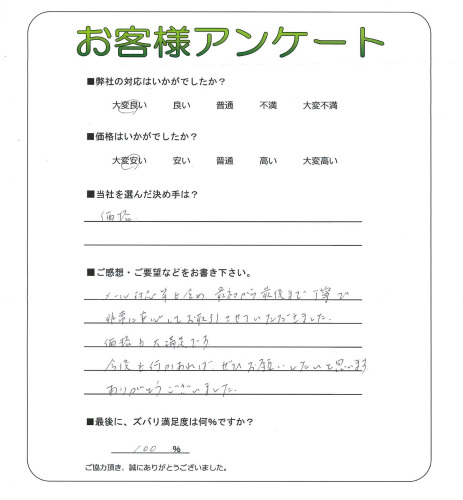 お客様アンケート
■弊社の対応はいかがでしたか？
大変良い 良い 普通 不満 大変不満
■価格はいかがでしたか？
大変安い 安い 普通 高い 大変高い
■当社を選んだ決め手は？
価格
■ご感想・ご要望などをお書き下さい。
メール対応等も含め 最初から最後まで丁寧で
非常に安心してお取引させていただきました。
価格も大満足です
今後も何かあれば ぜひお願いしたいと思います
ありがとうございました。
■最後に、ズバリ満足度は何%ですか？
100 %
ご協力頂き、誠にありがとうございました。